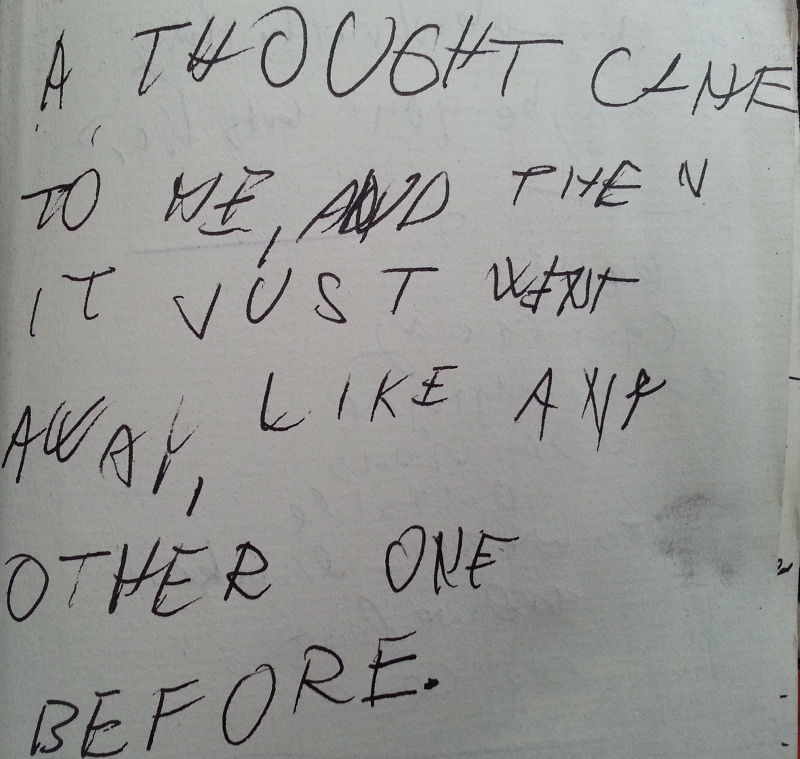 A THOUGHT CAME
TO ME, AND THEN
IT JUST WENT
AWAY, LIKE ANY
OTHER ONE
BEFORE.